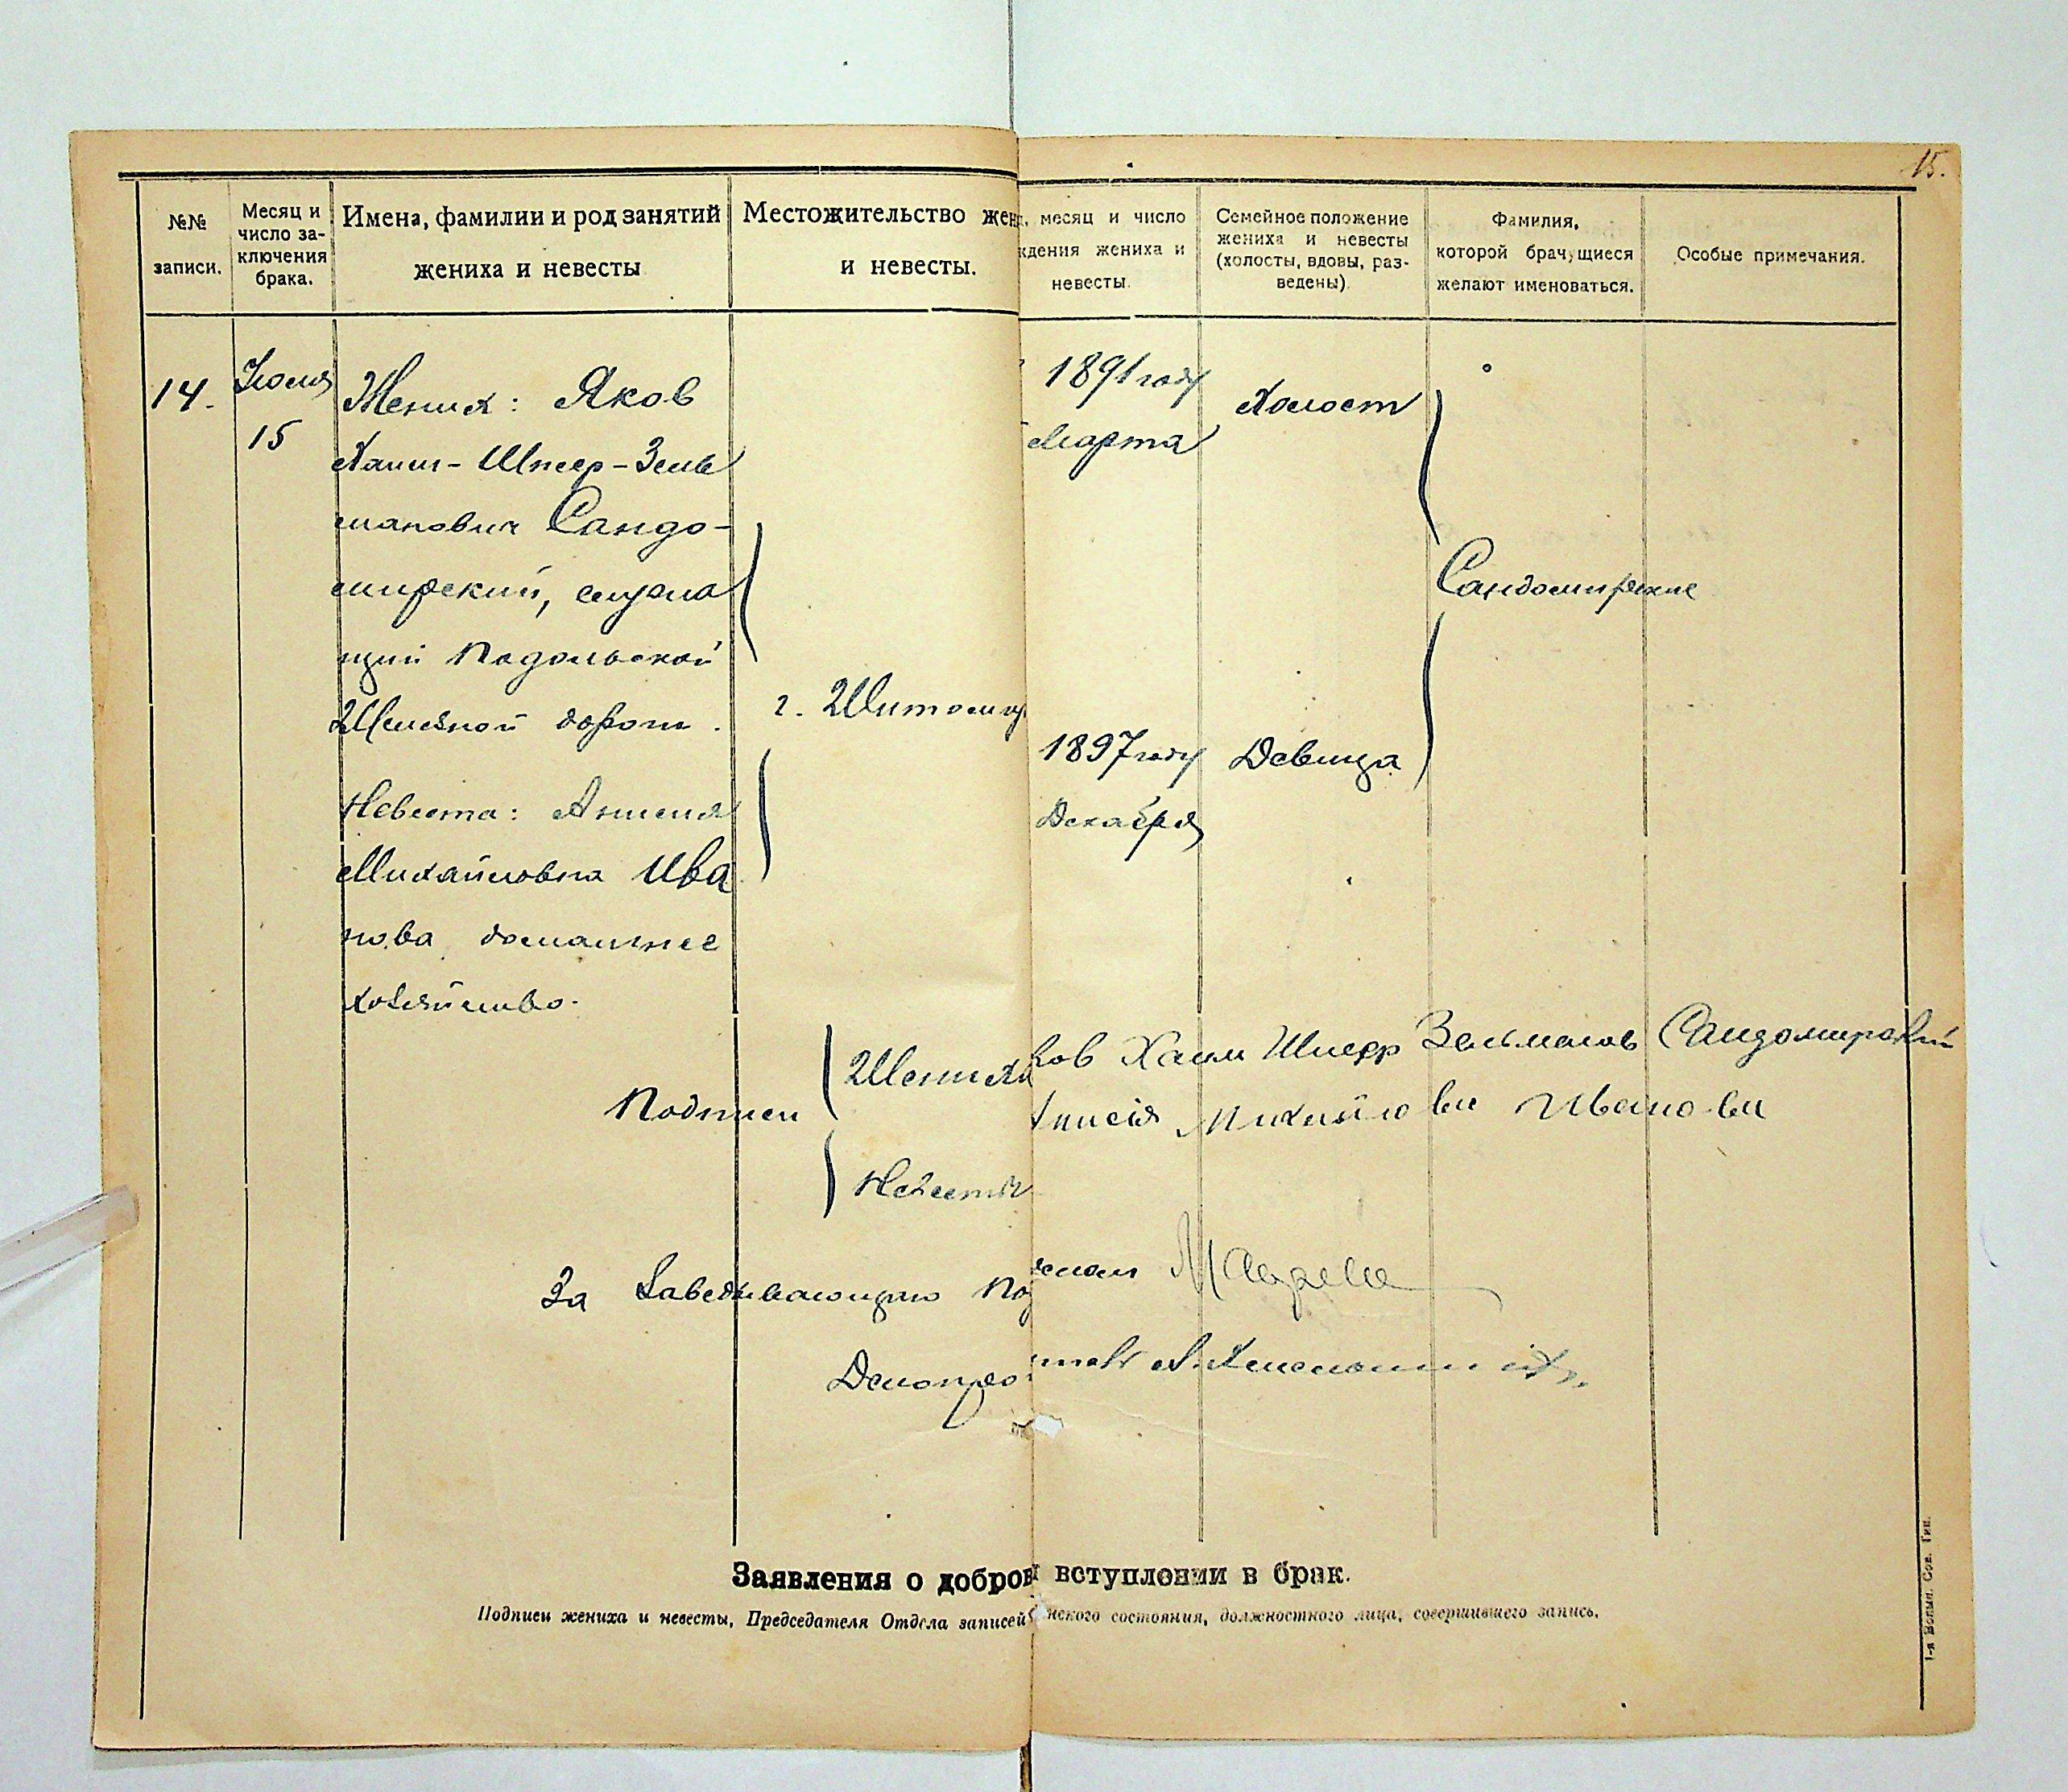 15.
№№ записи.
Месяц и число заключения брака.
Имена, фамилии и род занятий жениха и невесты
Местожительство жен
и невесты.
месяц и число
ждения жениха и
невесты.
Семейное положение
жениха и невесты
(холосты, вдовы, раз-
ведены).
Фамилия,
которой брачущиеся
желают именоваться.
Особые примечания.
14.
Июля
15
Жених: Яков
Хаим-Шнеер-Зель
манович Сандо-
мирский, служа
щий Подольской
Железной дороги.
Невеста: Анисия
Михайловна Ива
нова домашнее
хозяйство.
г. Житомир
1891 году
Марта
Холост
1897 году
Декабря
Девица
Сандомирские
Подписи
Жениха
ков Хаим Шнеер Зельманов Сандомирский
Невесты
нисія Михайлова Иванова
За Заведывающаго Под
Делопро
Заявления о добров вступлении в брак.
Подписи жениха и невесты, Председателя Отдела записей нского состояния, должностного лица, совершившего запись.
1-я Волын. Сов. Тип.